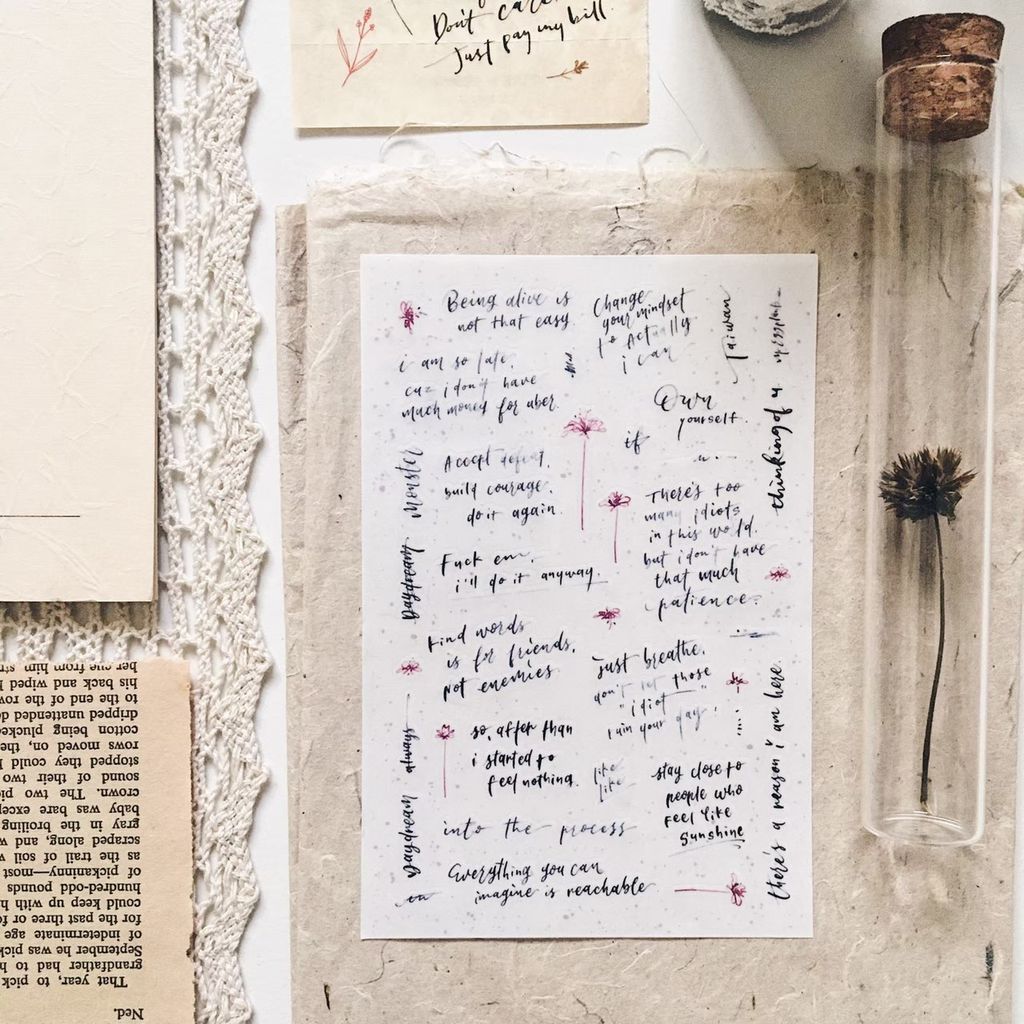 Don't care
Just pay my bill.
Being alive is
not that easy
Change
your mindset
to actually
i can
Taiwan
thinking of u
i am so late,
cuz i don't have
much money for uber.
Own
yourself.
if
Monster
Accept defeat,
build courage,
do it again.
There's too
many idiots
in this world.
but i don't have
that much
patience.
Daydream
Fuck em.
i'll do it anyway
Kind words
is for friends,
not enemies
Just breathe,
don't let those
"idiot"
ruin your day.
always
so, after than
i started to
feel nothing.
like
like
stay close to
people who
feel like
sunshine
there's a reason i am here.
Daydream
into the process
Everything you can
imagine is reachable
Ned.
That year, to pick
grandfather had to h
September he was pick
of indeterminate age
for the past three or fo
could keep up with h
hundred-odd pounds
of pickaninny—most
as the trail of soil w
scraped along, and w
gray in the broiling
baby was bare excep
crown. The two pic
sound of their two
stopped they could h
rows moved on, the
cotton being plucked
dripped unattended do
to the end of the row
his back and wiped h
her cue from him str